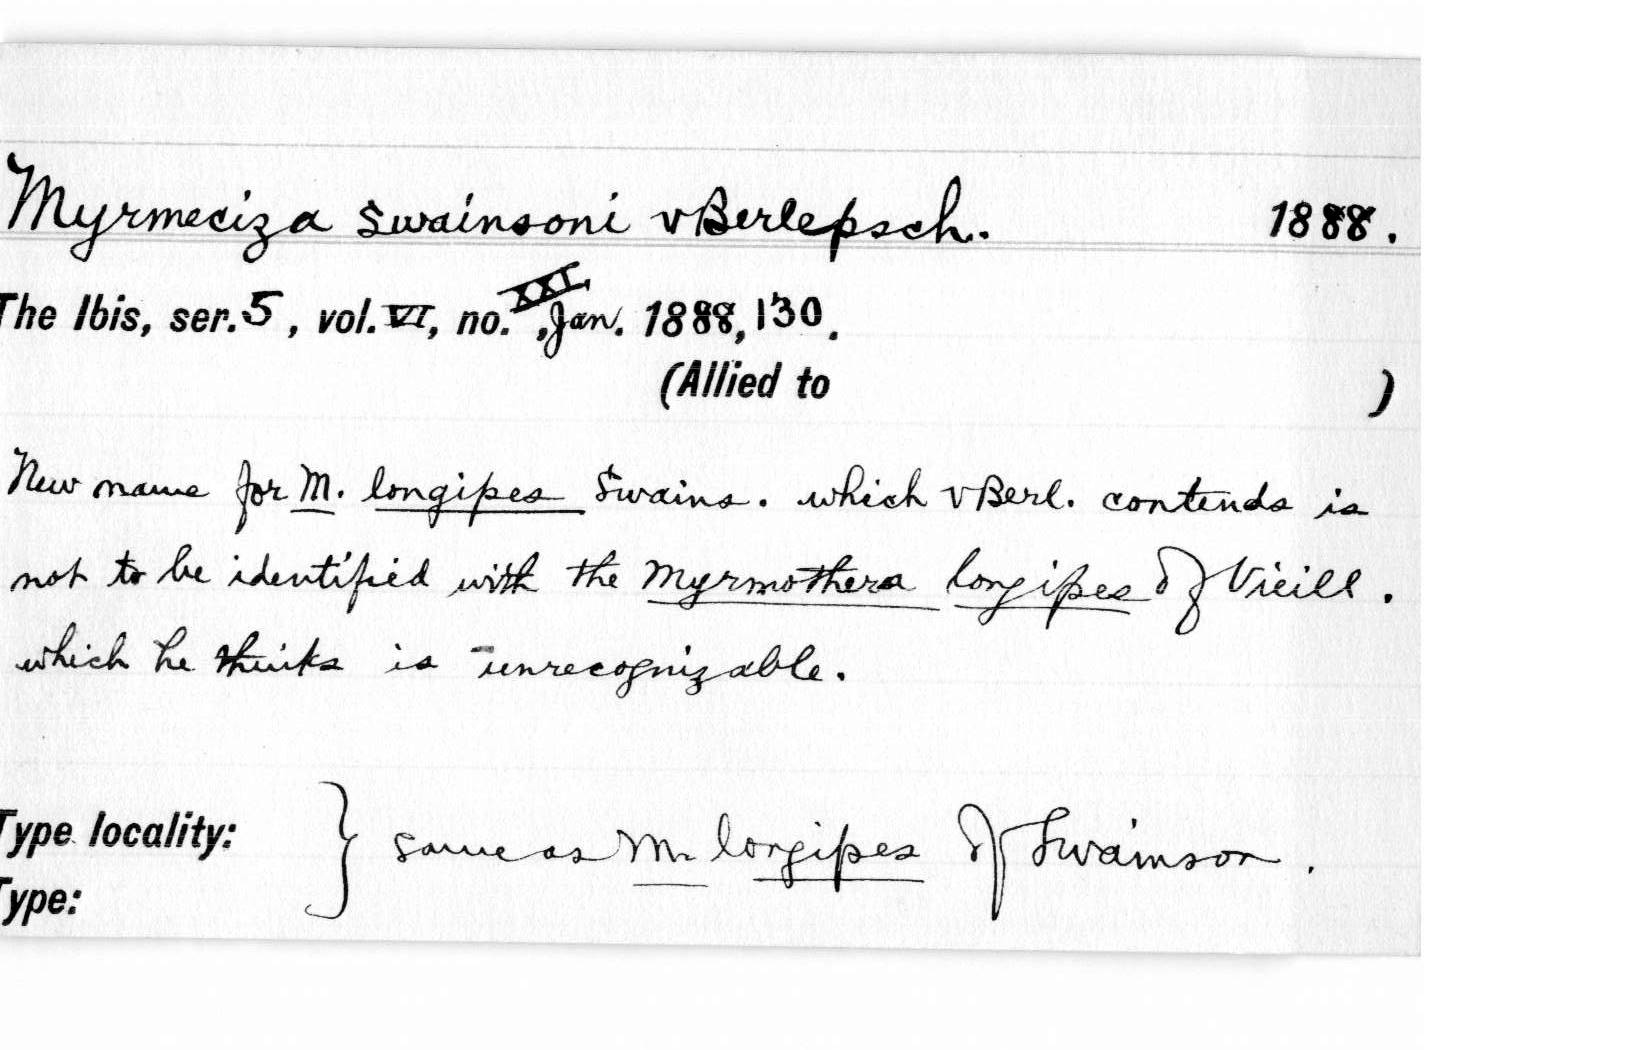 Myrmeciza swainsoni vBerlepsch. 1888.
The Ibis, ser.5, vol.VI, no.XXI, Jan. 1888, 130.
(Allied to )
New name for M. longipes Swains. which vBerl. contends is
not to be identified with the Myrmothera longipes of Vieill.
which he thinks is unrecognizable.
Type locality: } same as M. longipes of Swainson.
Type: